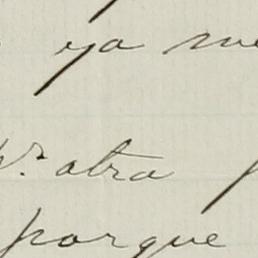 ya me
pr. otra
porque